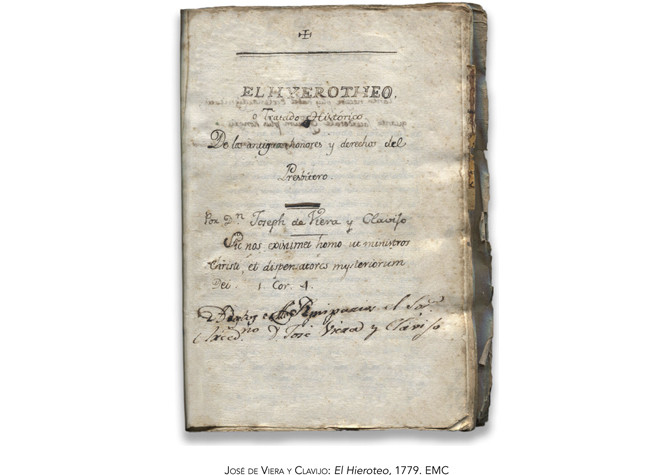 EL HYEROTHEO.
o Tratado Historico
De los antiguos honores y derechos del
Presbitero.
Por Dn. Joseph de Viera y Clavijo
Sic nos existimet homo ut ministros
Christi, et dispensatores mysteriorum
Dei. 1 Cor. 4.
el
Dn José Viera y Clavijo
JOSÉ DE VIERA Y CLAVIJO: El Hieroteo, 1779. EMC